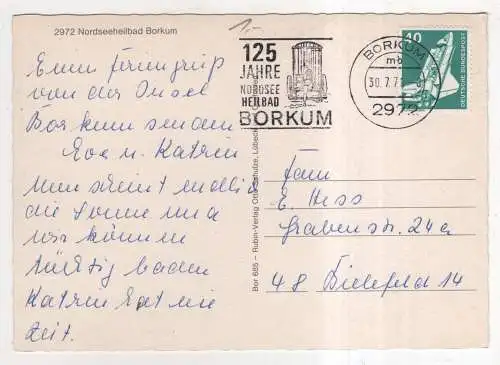 2972 Nordseeheilbad Borkum
1,-
125
JAHRE
NORDSEE
HEILBAD
BORKUM
BORKUM
mb
30.7.7
2972
40
DEUTSCHE BUNDESPOST
Einen Feriengruß
von der Insel
Borkum senden
Eva u. Katrin
Nun scheint endlich
die Sonne und
wir können
tüchtig baden
Katrin hat nie
Zeit.
Bor 685 – Rubin-Verlag Otto Schulze, Lübeck
Fam
E. Hess
Grabenstr. 24a
48 Bielefeld 14